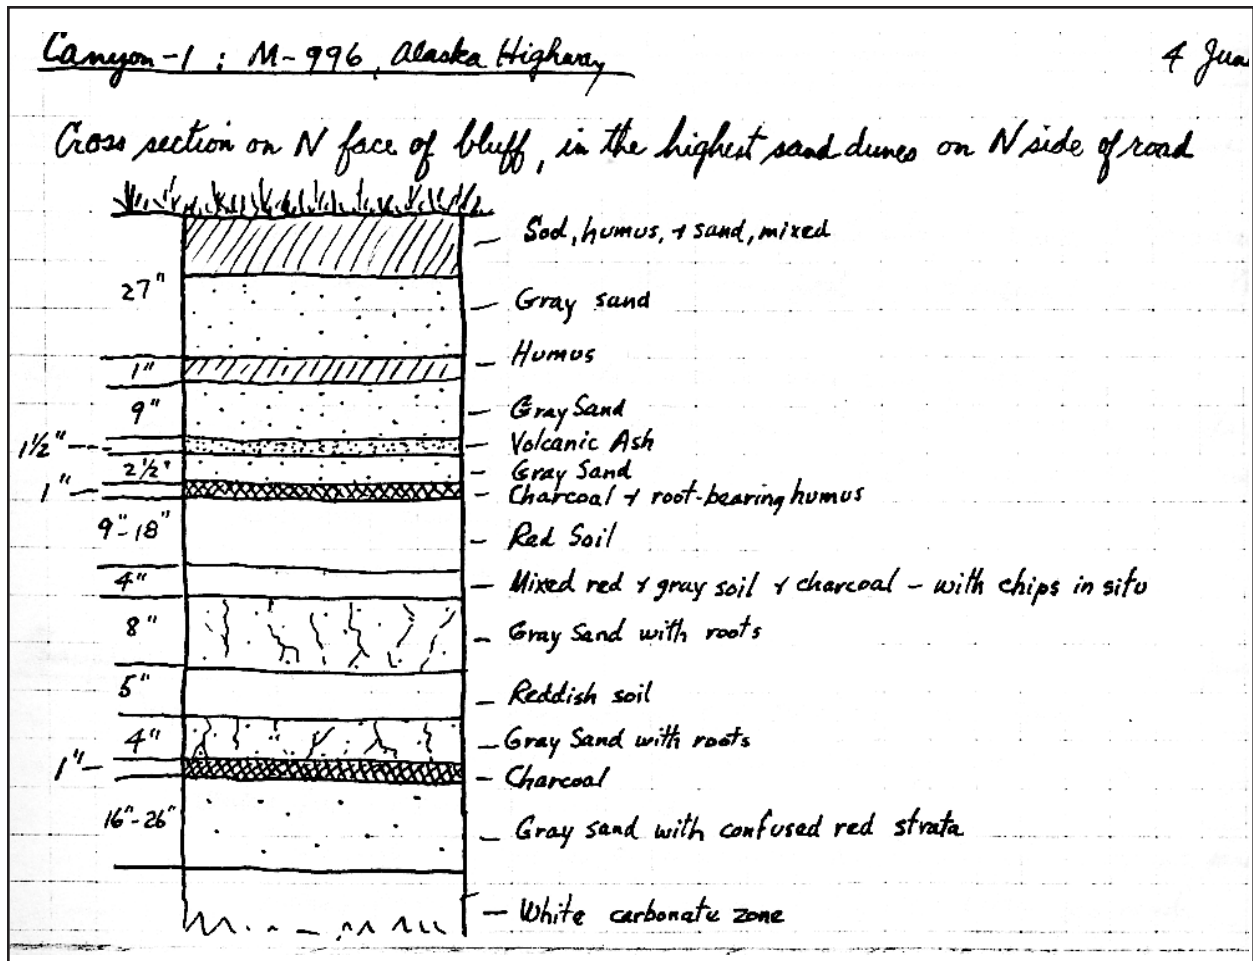 Canyon-1 : M-996, Alaska Highway
4 Jun
Cross section on N face of bluff, in the highest sand dunes on N side of road
Sod, humus, + sand, mixed
27"
Gray sand
Humus
1"
9"
Gray Sand
1½"
Volcanic Ash
2½"
Gray Sand
1"
Charcoal + root-bearing humus
9"-18"
Red Soil
4"
Mixed red + gray soil + charcoal - with chips in situ
8"
Gray Sand with roots
5"
Reddish soil
4"
Gray Sand with roots
1"
Charcoal
16"-26"
Gray sand with confused red strata
White carbonate zone